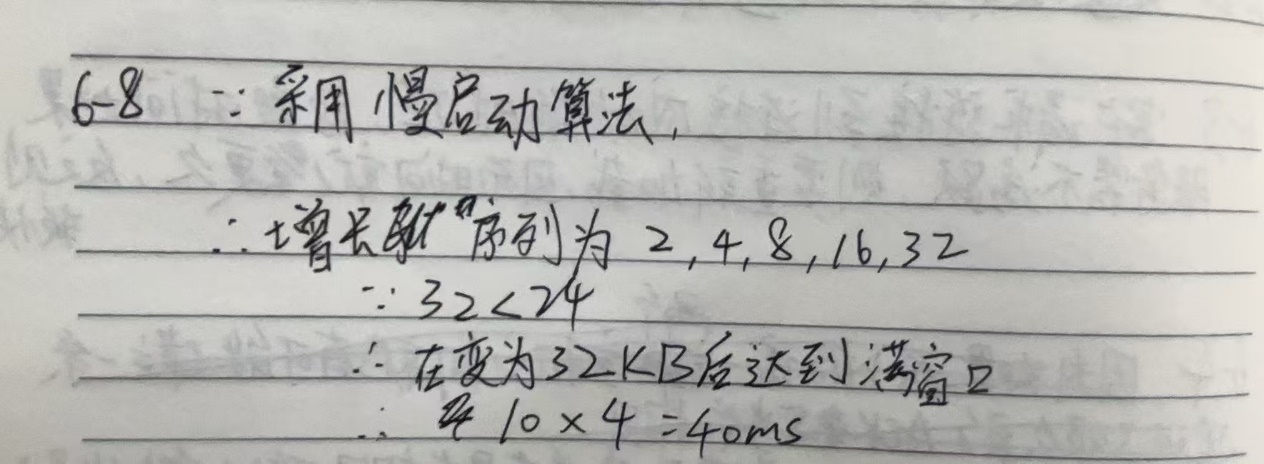 6-8 ∵ 采用慢启动算法,
∴ 增长 序列为 2, 4, 8, 16, 32
∵ 32<24
∴ 在变为32KB后达到满窗口
∴ 10×4=40ms